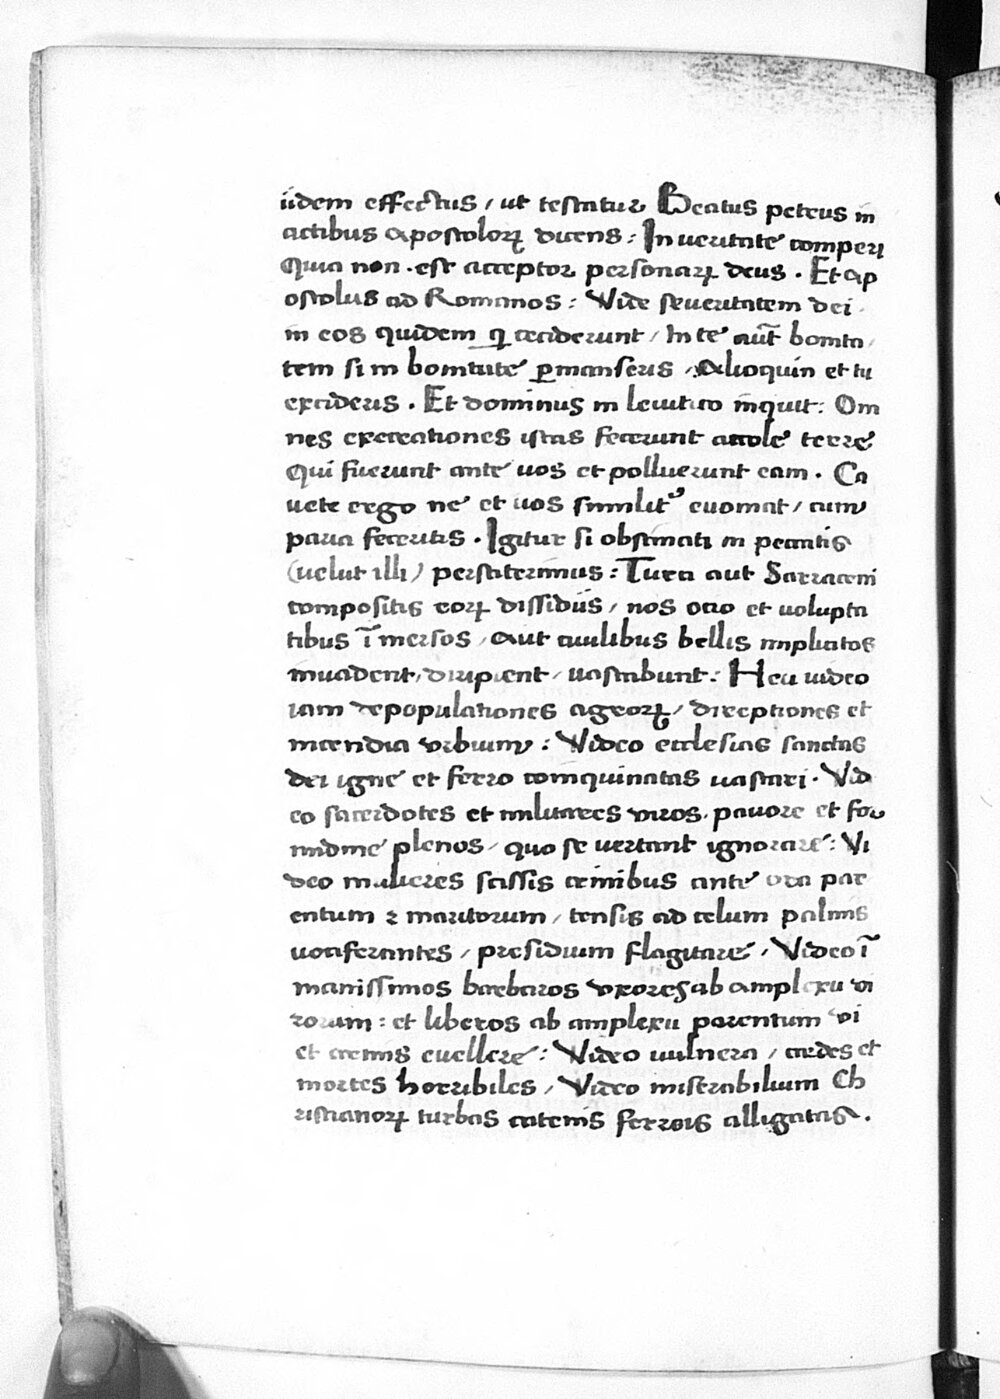 iidem effectus / ut testatur Beatus petrus in
actibus apostoloꝝ dicens : In ueritate comperi
Quia non . est acceptor personaꝝ deus . Et ap
ostolus ad Romanos : Vide seueritatem dei
in eos quidem q ceciderunt / In te aut̄ bonita /
tem si in bonitate ꝑmanseris / Alioquin et tu
excideris . Et dominus in leuitico inquit : Om
nes execrationes istas fecerunt accole terre
Qui fuerunt ante uos et polluerunt eam . Ca
uete ergo ne et uos similitꝰ euomat / cum
paria feceritis . Igitur si obstinati in peccatis
(uelut illi) perstiterimus : Turci aut Sarraceni
compositis eoꝝ dissidiis / nos ocio et uolupta
tibus ī mersos / aut ciuilibus bellis implicatos
inuadent / diripient / uastabunt : Heu uideo
iam depopulationes agroꝝ / direptiones et
incendia vrbium : Video ecclesias sanctas
dei igne et ferro coinquinatas uastari . Vid
eo sacerdotes et militares viros / pauore et for
midine plenos / quo se uertant ignorare : Vi
deo mulieres scissis crinibus ante ora par
entum ⁊ maritorum / tensis ad celum palmis
uociferantes / presidium flagitare / Video ī
manissimos barbaros vxores ab amplexu vi
rorum : et liberos ab amplexu parentum vi
et armis euellere : Video uulnera / cedes et
mortes horribiles / Video miserabilium Ch
ristianoꝝ turbas catenis ferreis alligatas .